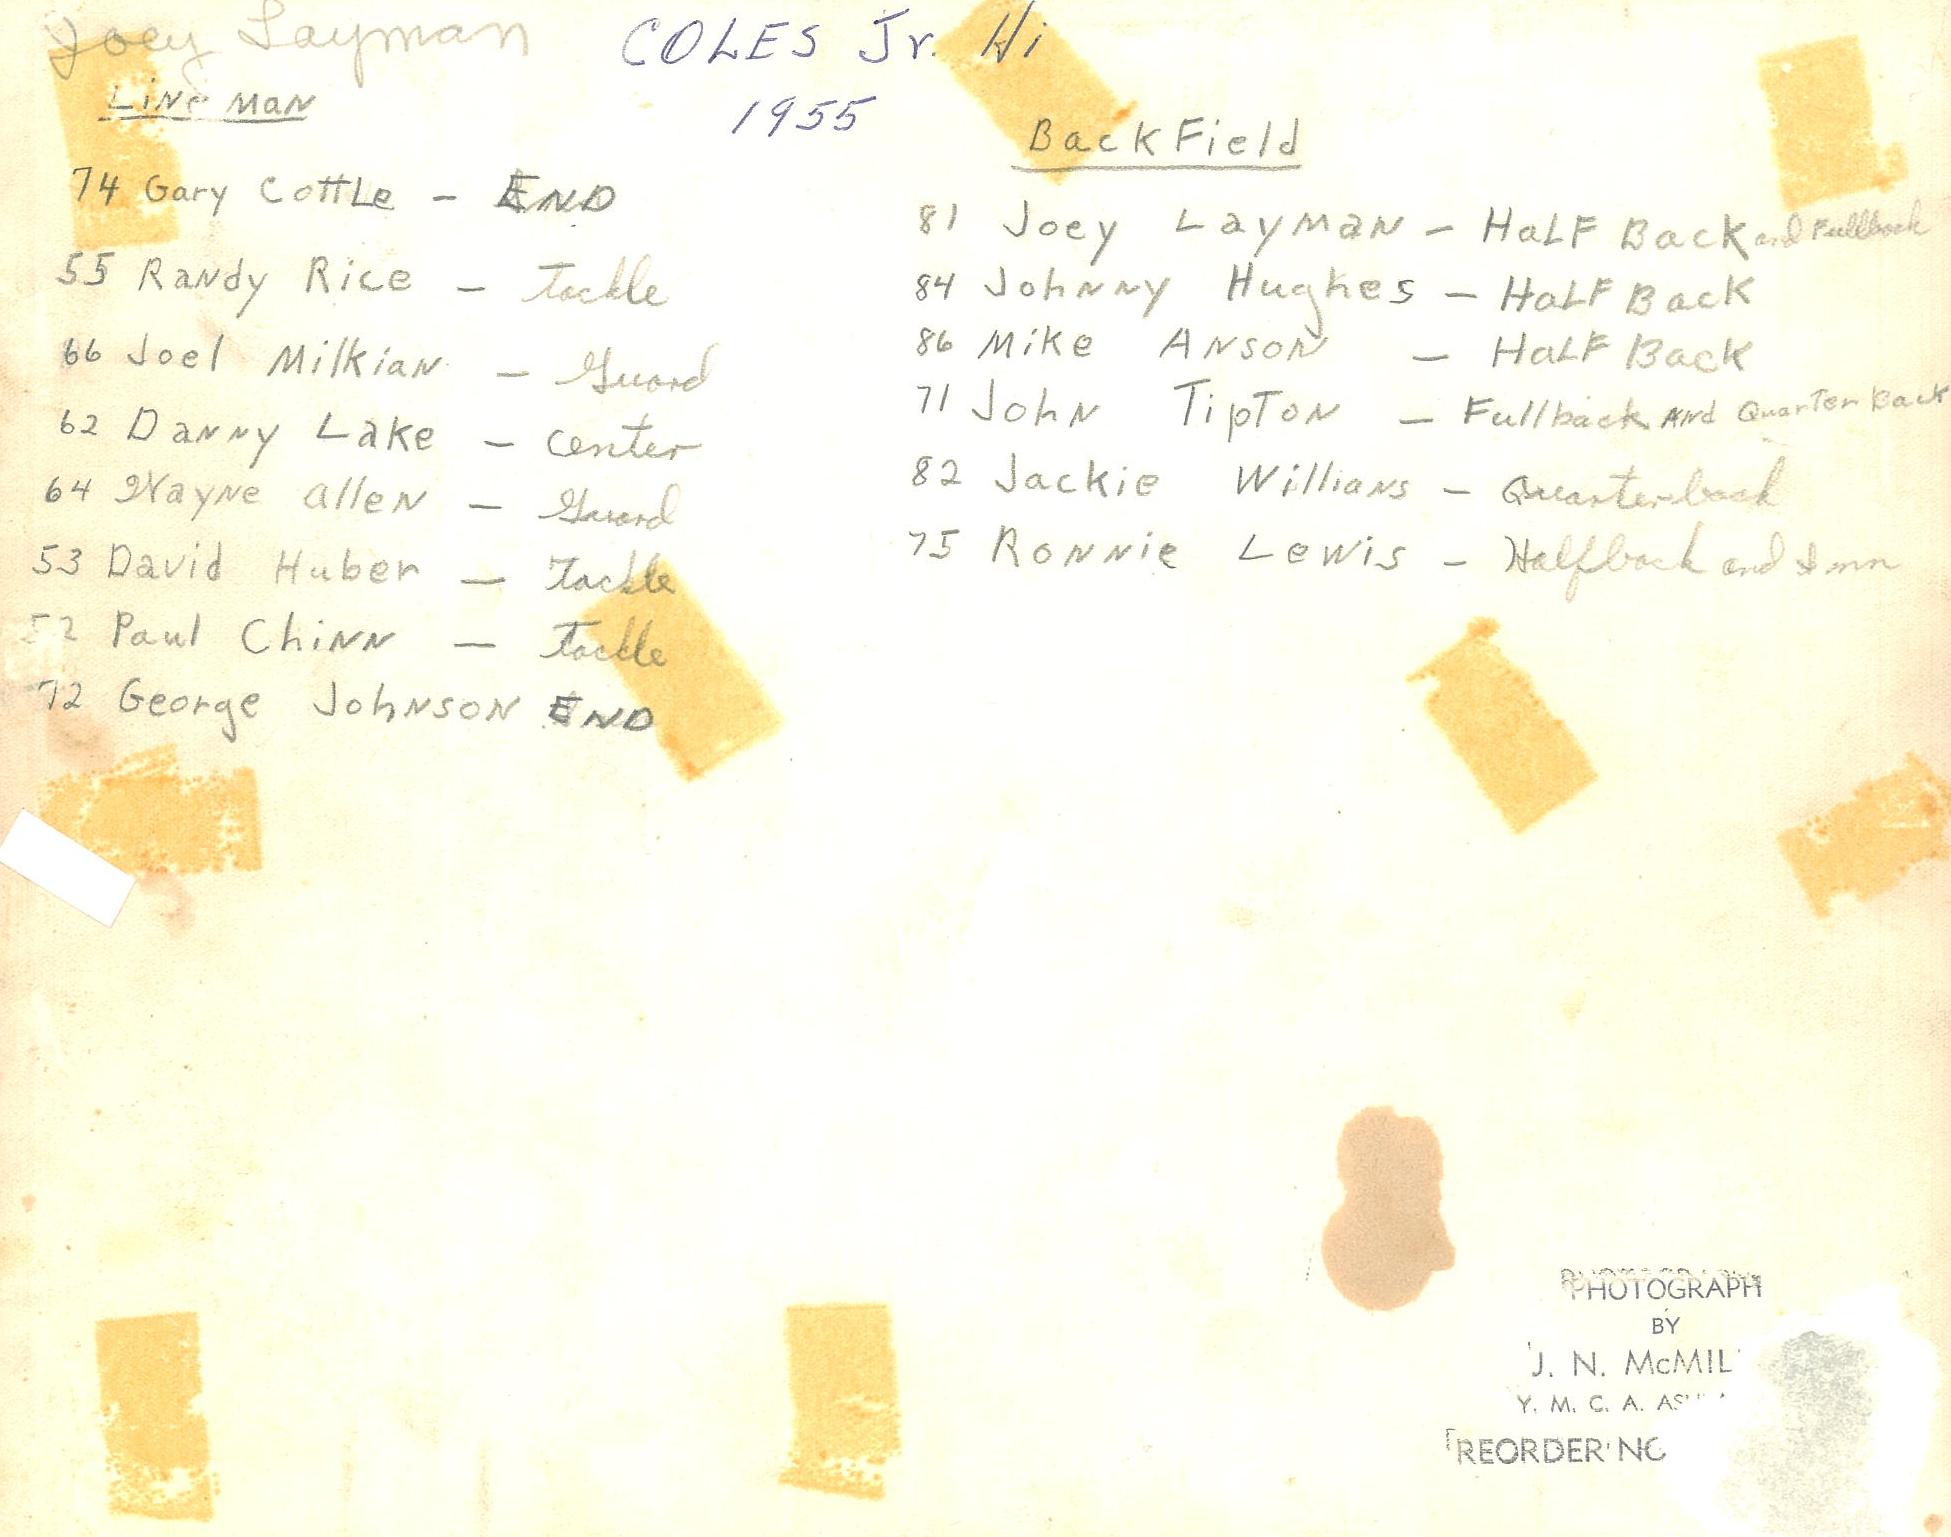 Joey Layman
COLES Jr. Hi
1955
Line man
74 Gary Cottle - END
55 Randy Rice - tackle
66 Joel Milkian - Guard
62 Danny Lake - center
64 Wayne allen - Guard
53 David Huber - tackle
52 Paul Chinn - tackle
72 George Johnson END
BackField
81 Joey Layman - HaLF Back and Fullback
84 Johnny Hughes - HaLF Back
86 Mike Anson - HaLF Back
71 John Tipton - Fullback And Quarterback
82 Jackie Willians - Quarterback
75 Ronnie Lewis - Halfback and
PHOTOGRAPH
BY
J. N. McMIL
Y. M. C. A.
REORDER NO